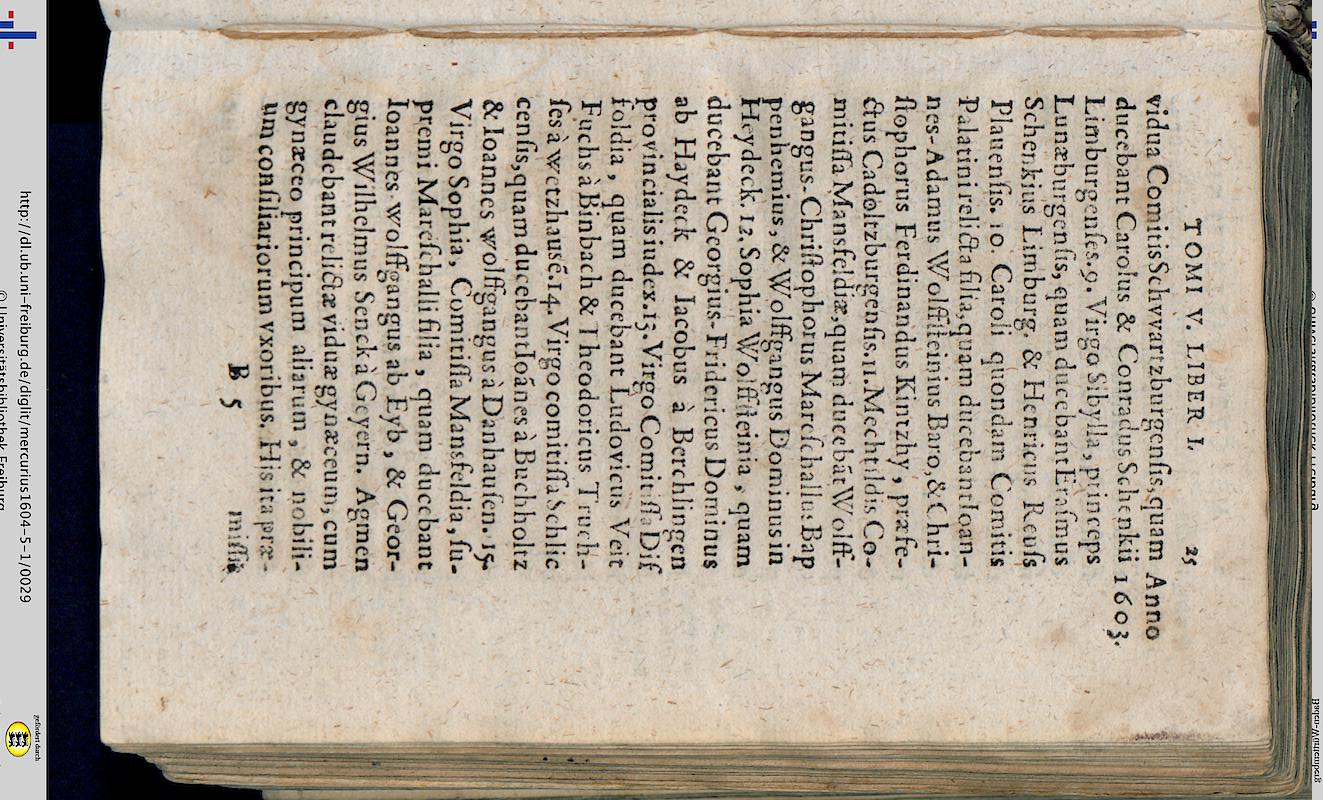 TOMI V. LIBER I. 25
vidua Comitis Schvvartzburgenſis, quam Anno
ducebant Carolus & Conradus Schenkii 1603.
Limburgenſes. 9. Virgo Sibylla, princeps
Lunæburgenſis, quam ducebant Eraſmus
Schenkius Limburg. & Henricus Reuſs
Plauenſis. 10. Caroli quondam Comitis
Palatini relicta filia, quam ducebant Ioan-
nes-Adamus Wolffſteinius Baro, & Chri-
ſtophorus Ferdinandus Kintzhy, præfe-
ctus Cadoltzburgenſis. 11. Mechtildis Co-
mitiſſa Mansfeldiæ, quam ducebāt Wolff-
gangus-Chriſtophorus Mareſchallus Bap
penhemius, & Wolffgangus Dominus in
Heydeck. 12. Sophia Wolffſteinia, quam
ducebant Georgius-Fridericus Dominus
ab Haydeck & Iacobus à Berchlingen
provincialis iudex. 13. Virgo Comitiſſa Diſ
foldia, quam ducebant Ludovicus Veit
Fuchs à Binbach & Theodoricus Truch-
ſes à wetzhauſē. 14. Virgo comitiſſa Schlic
cenſis, quam ducebant Ioānes à Buchholtz
& Ioannes wolffgangus à Danhauſen. 15.
Virgo Sophia, Comitiſſa Mansfeldia, ſu-
premi Mareſchalli filia, quam ducebant
Ioannes-wolffgangus ab Eyb, & Geor-
gius Wilhelmus Senck à Geyern. Agmen
claudebant relictæ viduæ gynæceum, cum
gynæceo principum aliarum, & nobili-
um conſiliariorum vxoribus. His ita præ-
B 5 miſſis
http://dl.ub.uni-freiburg.de/diglit/mercurius1604-5-1/0029
© Universitätsbibliothek Freiburg
gefördert durch